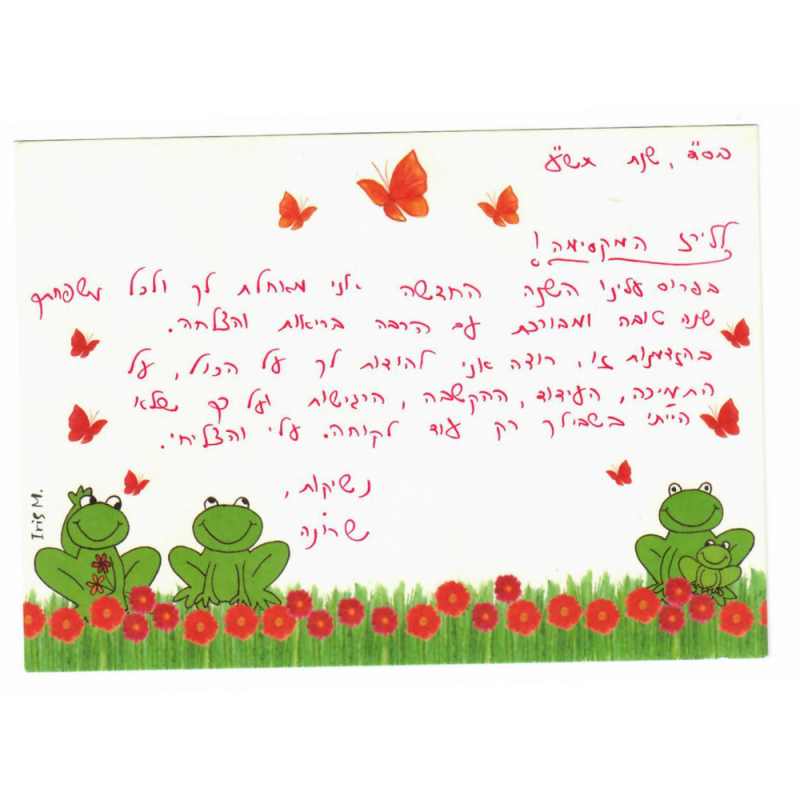 בס"ד, שנת תשע"א
ללירז המקסימה!
בפרוס עלינו השנה החדשה אני מאחלת לך ולכל משפחתך
שנה טובה ומבורכת עם הרבה בריאות והצלחה.
בהזדמנות זו, רוצה אני להודות לך על הכול, על
התמיכה, העידוד, ההקשבה, הרגישות ועל כך שלא
הייתי בשבילך רק עוד לקוחה. עלי והצליחי.
נשיקות,
שרונה
Iris M.